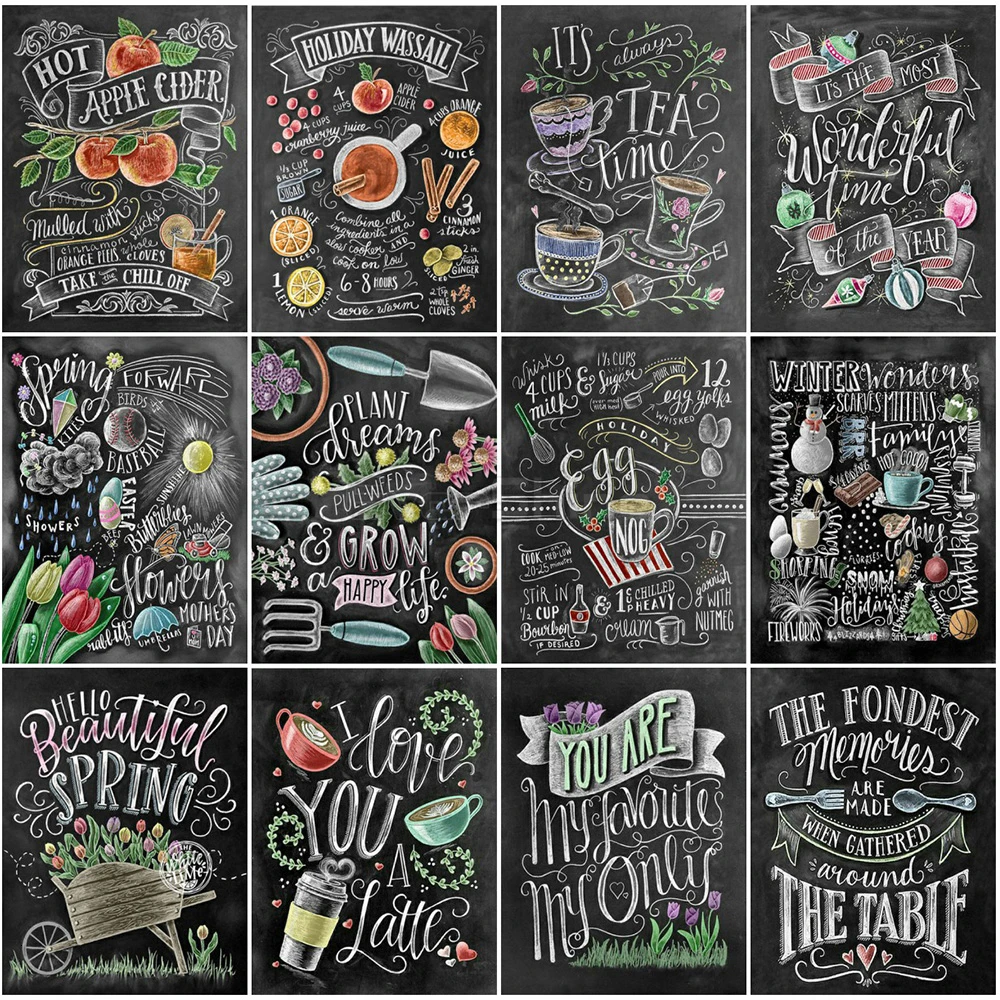 HOT
APPLE CIDER
Mulled with
cinnamon sticks
ORANGE PEELS & whole
CLOVES
TAKE the CHILL OFF
HOLIDAY WASSAIL
4
CUPS
APPLE
CIDER
4 CUPS
cranberry juice
4 CUPS ORANGE
JUICE
1/2 CUP
BROWN
SUGAR
1 ORANGE
(SLICED)
3
CINNAMON
sticks
Combine all
ingredients in a
slow cooker AND
cook on low
6-8 HOURS
serve warm
2 in
fresh
GINGER
SLICED
1
LEMON (SLICED)
2 Tsp
WHOLE
CLOVES
IT'S always
TEA
time
IT'S THE MOST
Wonderful
time
of the YEAR
Spring FORWARD
BIRDS
KITES
BASEBALL
SUNSHINE
EASTER
SHOWERS
BEES
Butterflies
LAWNMOWERS
flowers
MOTHERS
DAY
rabbits
UMBRELLAS
PLANT
dreams
PULL WEEDS
& GROW
a HAPPY life.
Whisk
4 CUPS
milk
&
1 1/2 CUPS
Sugar
(over med
HIGH heat)
POUR INTO
12
egg yolks
WHISKED
HOLIDAY
Egg
NOG
COOK on MED-LOW
20-25 minutes
STIR IN
1/2 CUP
Bourbon
IF DESIRED
&
1 c CHILLED
HEAVY
cream
garnish
WITH
NUTMEG
WINTER Wonders
SCARVES MITTENS
BRR
Family
SLEDDING
HOT COCOA
snowmen
Eggnog
Cookies
FLURRIES
SHOPPING
SNOW
Holidays
FIREWORKS
BLIZZARDS
HELLO
Beautiful
SPRING
I love
YOU
A
Latte
YOU ARE
my favorite
my Only
THE FONDEST
Memories
ARE
MADE
WHEN GATHERED
around
THE TABLE